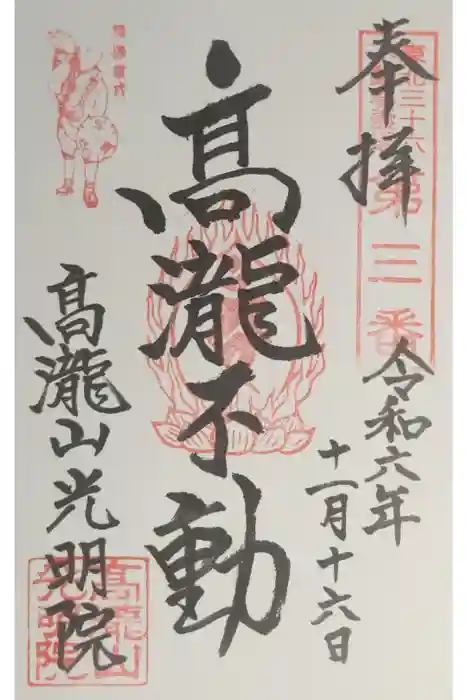 奉拝
第三番
令和六年
十一月十六日
高瀧不動
高瀧山光明院
高瀧山
光明院